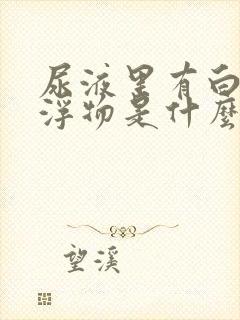 尿液里有白
浮物是什麼
望溪